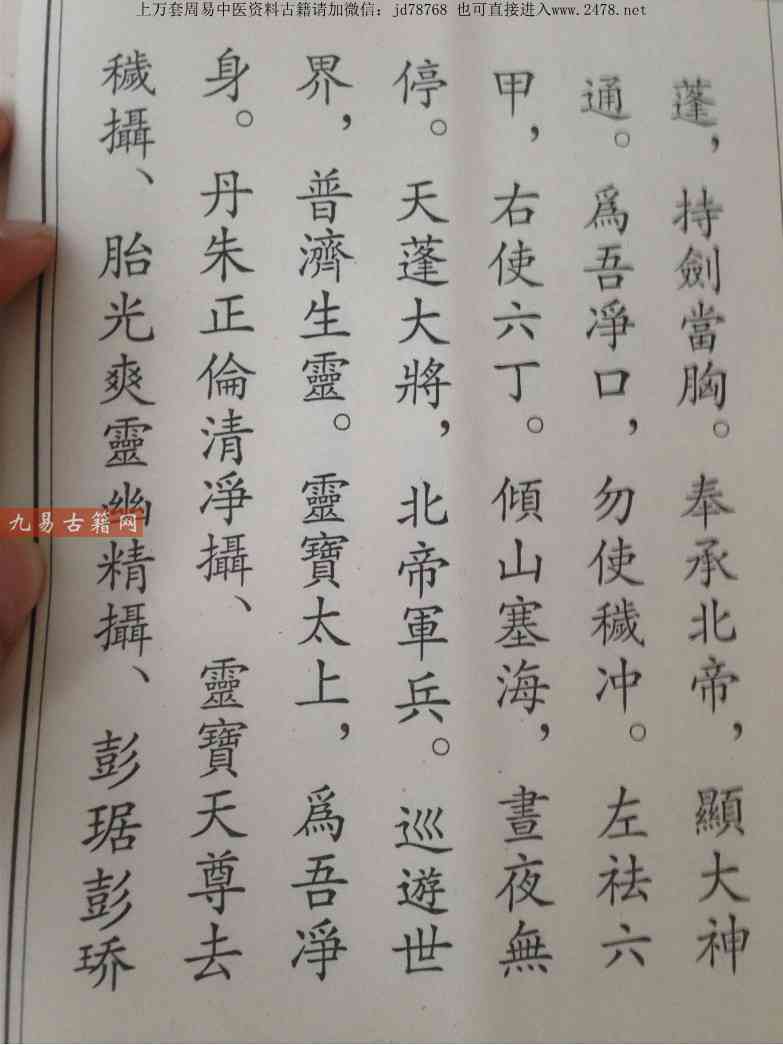 上万套周易中医资料古籍请加微信：jd78768 也可直接进入www.2478.net
蓬，持劍當胸。奉承北帝，顯大神
通。爲吾凈口，勿使穢冲。左祛六
甲，右使六丁。傾山塞海，晝夜無
停。天蓬大將，北帝軍兵。巡遊世
界，普濟生靈。靈寶太上，爲吾凈
身。丹朱正倫清凈攝、靈寶天尊去
穢攝、胎光爽靈幽精攝、彭琚彭琦
九易古籍网